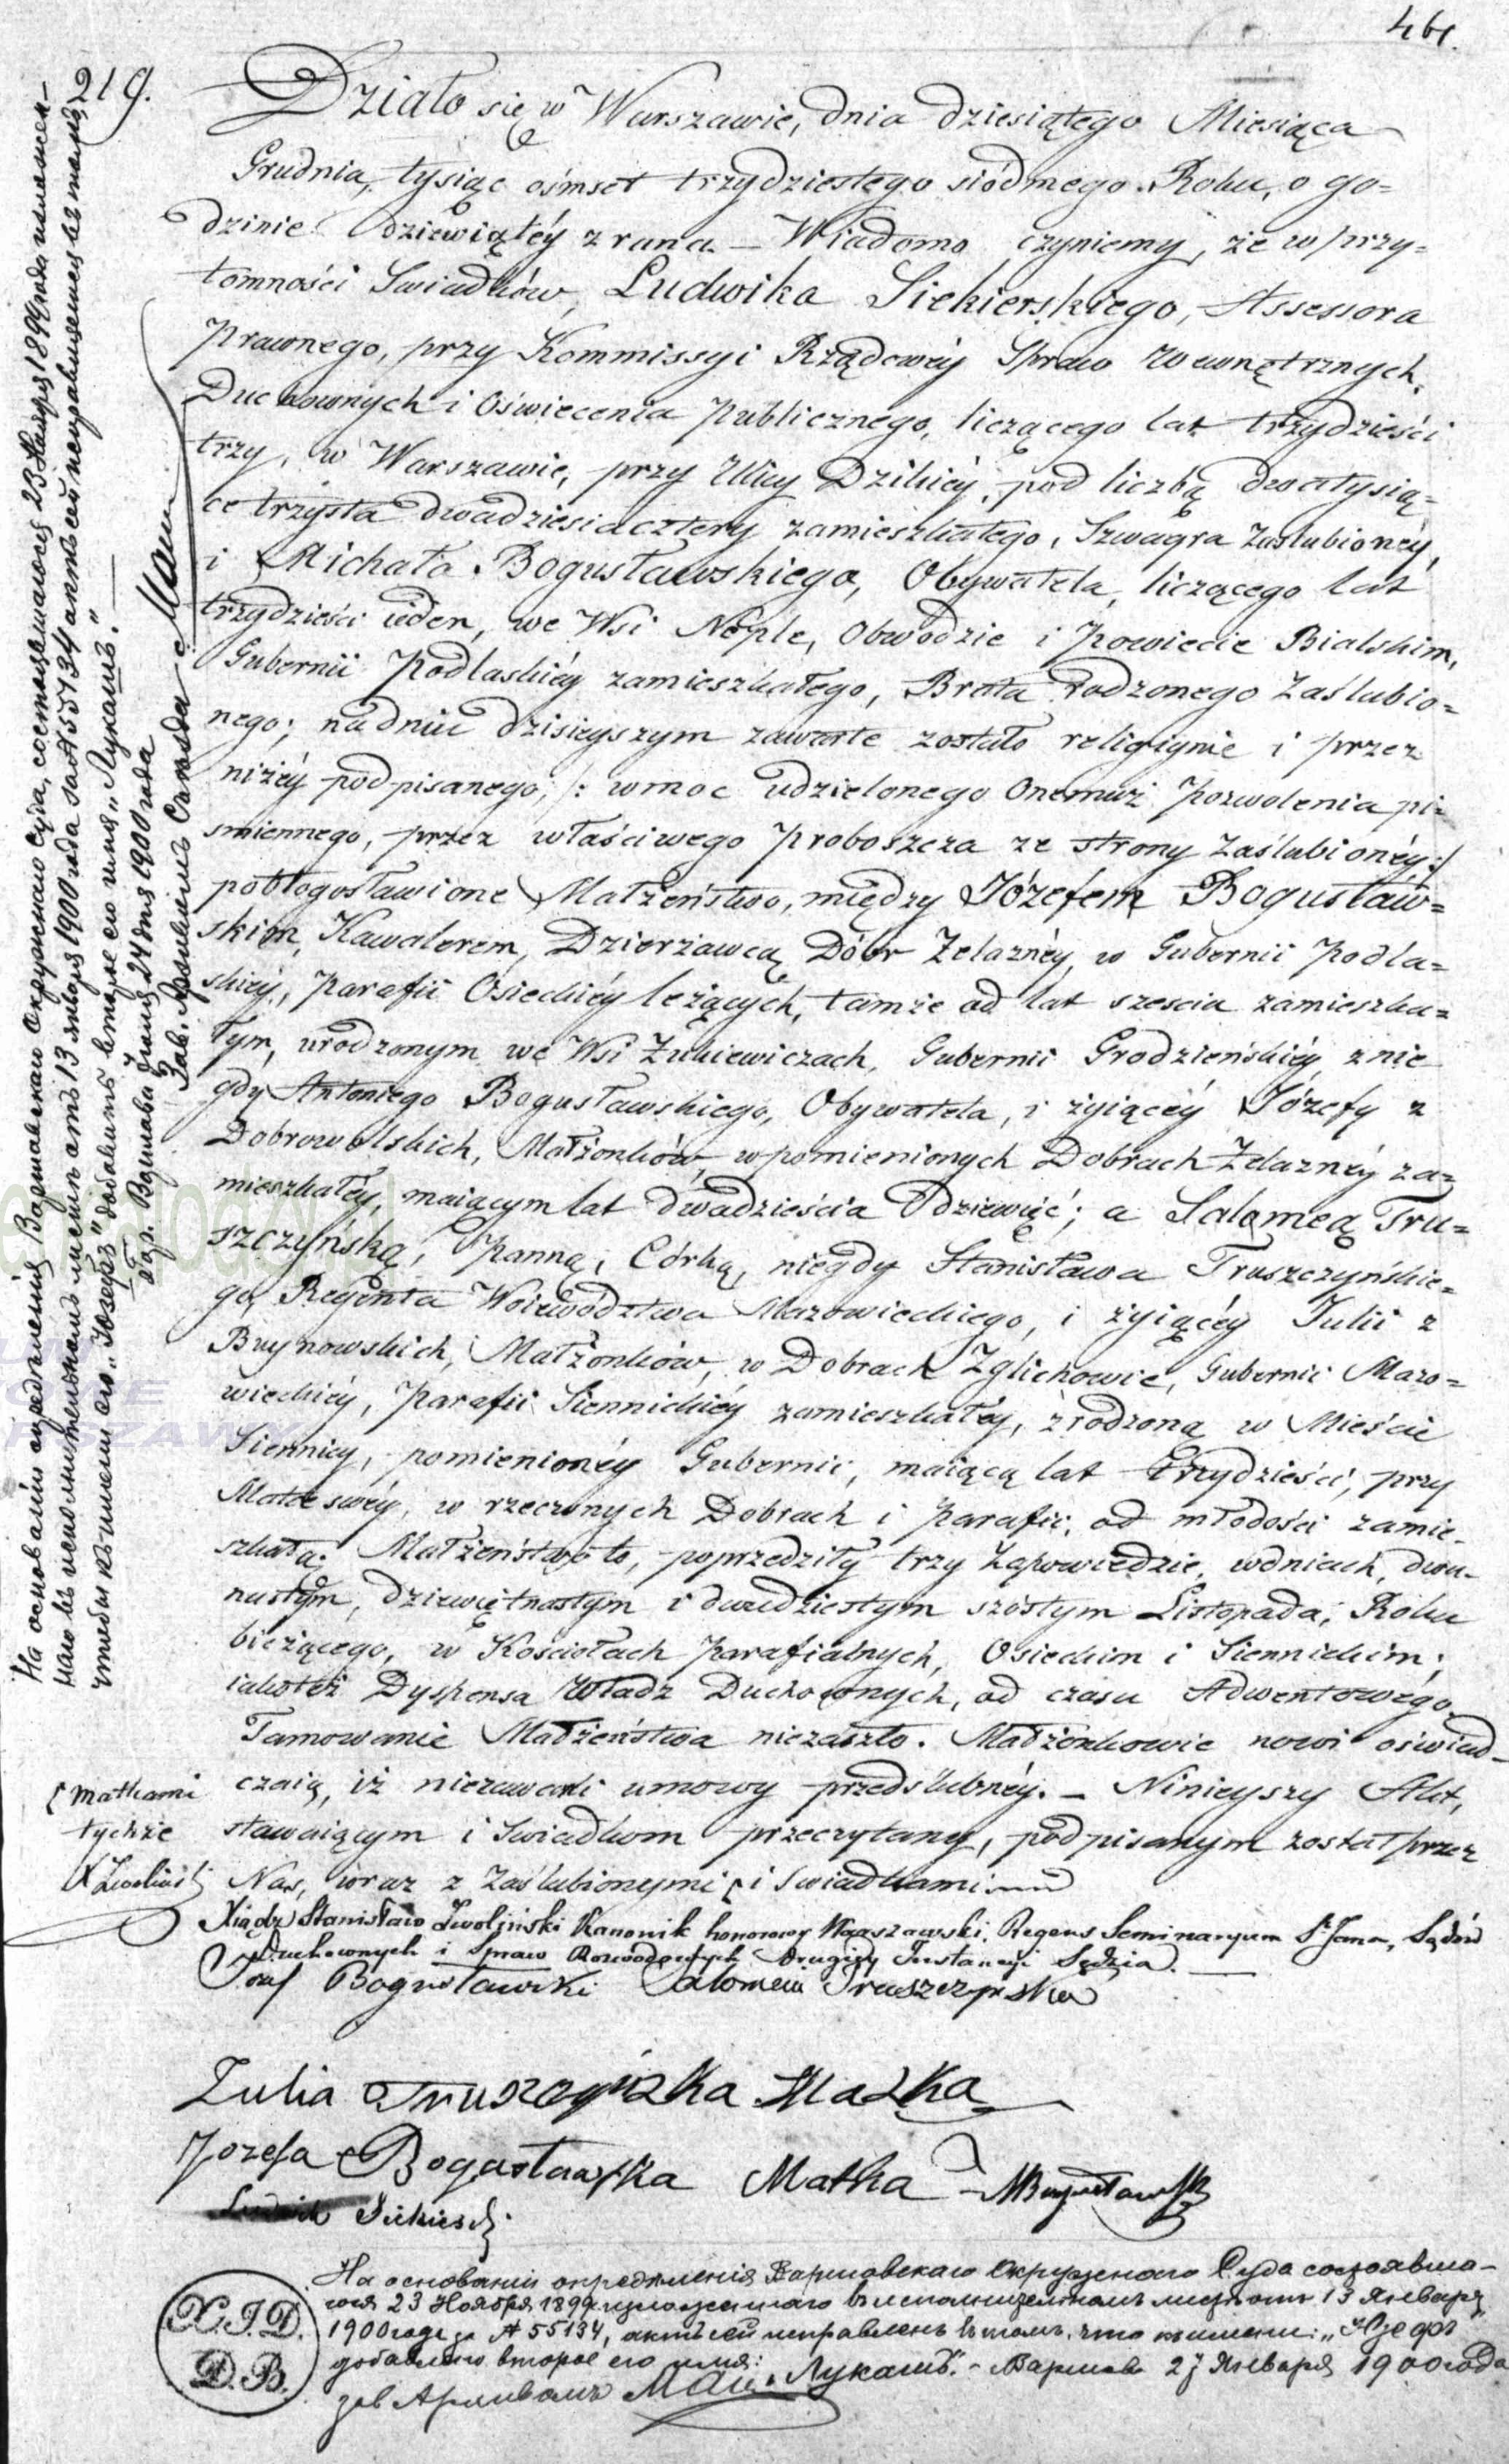 461.
219.
Działo się w Warszawie, dnia dziesiątego Miesiąca
Grudnia, tysiąc ośmset trzydziestego siódmego Roku, o go=
dzinie dziewiątéy zrana — Wiadomo czyniemy, że w przy=
tomności Swiadków, Ludwika Siekierskiego, Assessora
Prawnego, przy Kommissyi Rządowéy Spraw Wewnętrznych,
Duchownych i Oświecenia Publicznego, liczącego lat trzydzieści
trzy, w Warszawie, przy Ulicy Dzikiéy, pod liczbą dwatysią=
ce trzysta dwadziesiacztery zamieszkałego, Szwagra Zaślubionéy,
i Michała Bogusławskiego, Obywatela, liczącego lat
trzydzieści ieden, we Wsi Neple, Obwodzie i Powiecie Bialskim,
Gubernii Podlaskiéy zamieszkałego, Brata rodzonego Zaślubio=
nego; na dniu dzisieyszym zawarte zostało religiynie i przez
niżéy podpisanego, /: wmoc udzielonego Onemuż Pozwolenia pi=
smiennego, przez właściwego Proboszcza ze strony Zaślubionéy :/
pobłogosławione Małżeństwo, między Józefem Bogusław=
skim, Kawalerem, Dzierżawcą Dóbr Żelaznéy, w Gubernii Podla=
skiéy, Parafii Osieckiéy leżących, tamże od lat sześcia zamieszka=
łym, urodzonym we Wsi Żukiewiczach, Gubernii Grodzieńskiéy, z nie
gdy Antoniego Bogusławskiego, Obywatela, i żyiącéy Józefy z
Dobrowolskich, Małżonków, wpomienionych Dobrach Żelaznéy za=
mieszkałéy, maiącym lat dwadzieścia dziewięć; a Salomeą Tru=
szczyńską, Panną, Córką, niegdy Stanisława Truszczyńskie=
go, Regenta Woiewództwa Mazowieckiego, i żyiącéy Julii z
Buynowskich, Małżonków, w Dobrach Zglichowie, Gubernii Mazo=
wieckiéy, Parafii Siennickiéy zamieszkałéy, zrodzoną w Mieście
Siennicy, pomienionéy Gubernii, maiącą lat trzydzieści, przy
Matce swéy, w rzeczonych Dobrach i Parafii, od młodości zamie-
szkałą. Małżeństwo to, poprzedziły trzy Zapowiedzie, wdniach, dwu-
nastym, dziewiętnastym i dwudziestym szóstym Listopada, Roku
bieżącego, w Kościołach Parafialnych, Osieckim i Siennickim;
iakoteż Dyspensa Władz Duchownych, od czasu Adwentowego.
Tamowanie Małżeństwa niezaszło. Małżonkowie nowi oświad-
czaią, iż niezawarli umowy przedślubnéy. — Ninieyszy Akt,
stawaiącym i Swiadkom przeczytany, podpisanym został przez
Nas, wraz z Zaślubionymi [ i Swiadkami
[ Matkami
tychże
X Zwoliński
Xiądz Stanisław Zwoliński Kanonik honorowy Warszawski, Regens Seminaryum S. Jana, Sądów
Duchownych i Spraw Rozwodowych Drugiey Instancyi Sędzia.
Józef Bogusławski Salomeia Truszczyńska
Julia Truszczyńska Matka
Jozefa Bogusławska Matka
MBogusławski
Ludwik Siekierski
На основаніи опредѣленія Варшавскаго Окружнаго Суда, состоявшагося 23 Ноября 1899 года изложен-
наго въ исполнительномъ листѣ отъ 13 Января 1900 года за № 55134 актъ сей исправляется въ томъ,
чтобы къ имени его „Іозефъ" добавить второе его имя „Лукашъ".
гор. Варшава дня 24 дня 1900 года
Зав. Архивомъ
На основаніи опредѣленія Варшавскаго Окружнаго Суда состоявша-
гося 23 Ноября 1899 изложеннаго въ исполнительномъ листѣ отъ 13 Января
1900 года за № 55134, актъ сей исправленъ въ томъ, что къ имени: „Юзефъ"
добавлено второе его имя: „Лукашъ". - Варшава 27 Января 1900 года
зав Архивомъ
Х.І.Д.
Д.В.